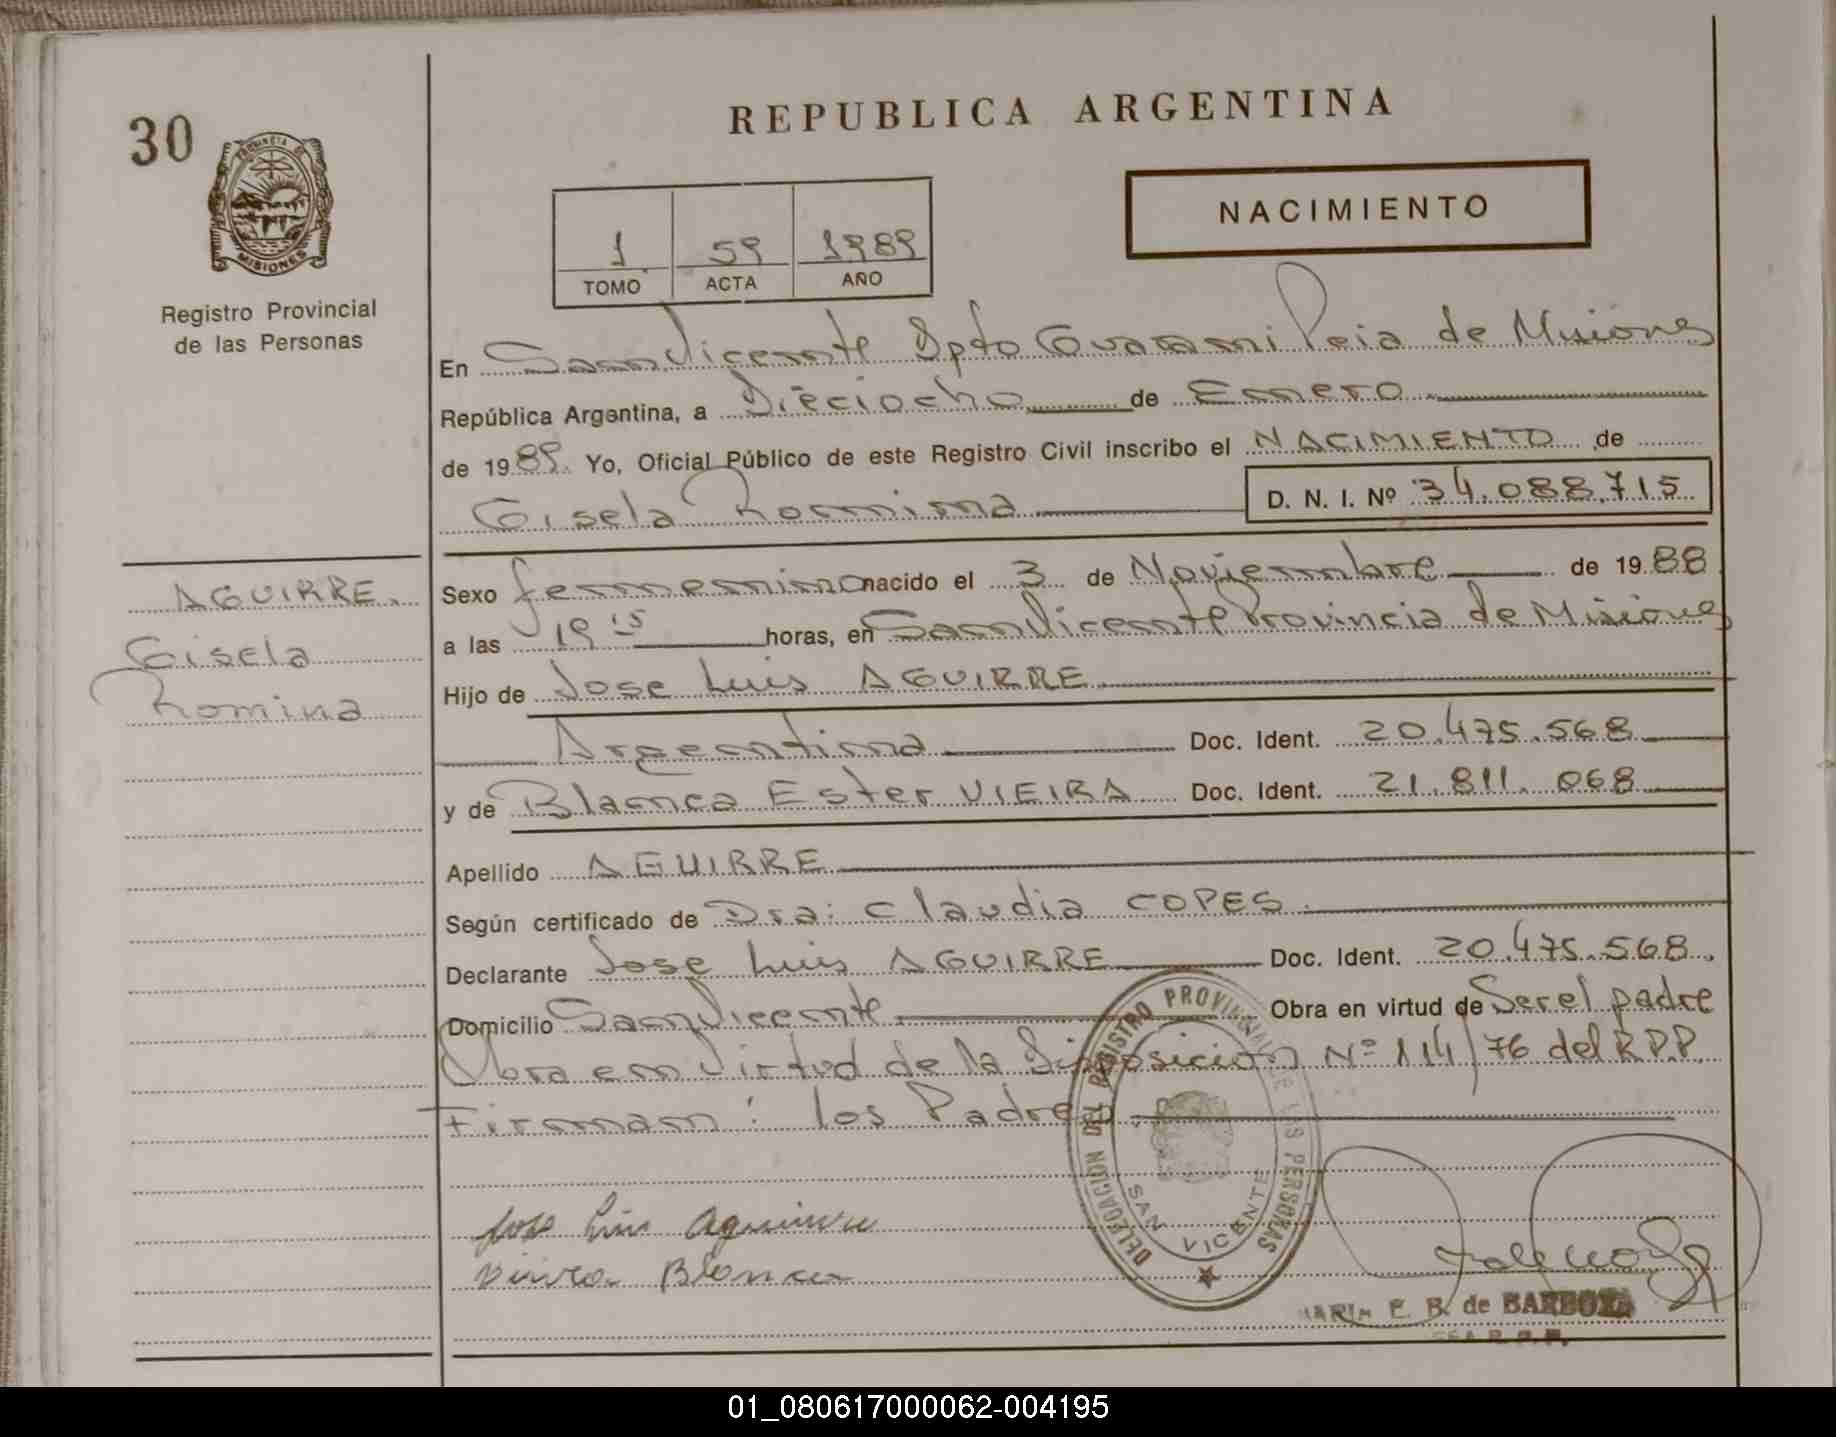 30
PROVINCIA DE
MISIONES
Registro Provincial
de las Personas
REPUBLICA ARGENTINA
NACIMIENTO
1 59 1989
TOMO ACTA AÑO
En San Vicente Dpto Guarani Pcia de Misiones
República Argentina, a Dieciocho de Enero
de 1989. Yo, Oficial Público de este Registro Civil inscribo el NACIMIENTO de
Gisela Romina D. N. I. Nº 34.088.715
AGUIRRE.
Gisela
Romina
Sexo femenino nacido el 3 de Noviembre de 1988
a las 19 15 horas, en San Vicente Provincia de Misiones
Hijo de Jose Luis AGUIRRE
Argentina Doc. Ident. 20.475.568
y de Blanca Ester VIEIRA Doc. Ident. 21.811.068
Apellido AGUIRRE
Según certificado de Dra: Claudia COPES.
Declarante Jose Luis AGUIRRE Doc. Ident. 20.475.568.
Domicilio San Vicente Obra en virtud de Ser el padre
Obra en Virtud de la Disposicion Nº 114/76 del R.P.P.
Firman: los Padres.
DELEGACION DEL REGISTRO PROVINCIAL DE LAS PERSONAS
SAN VICENTE
Jose Luis Aguirre
Vieira Blanca
MARIA E. B. de BARBOZA
01_080617000062-004195